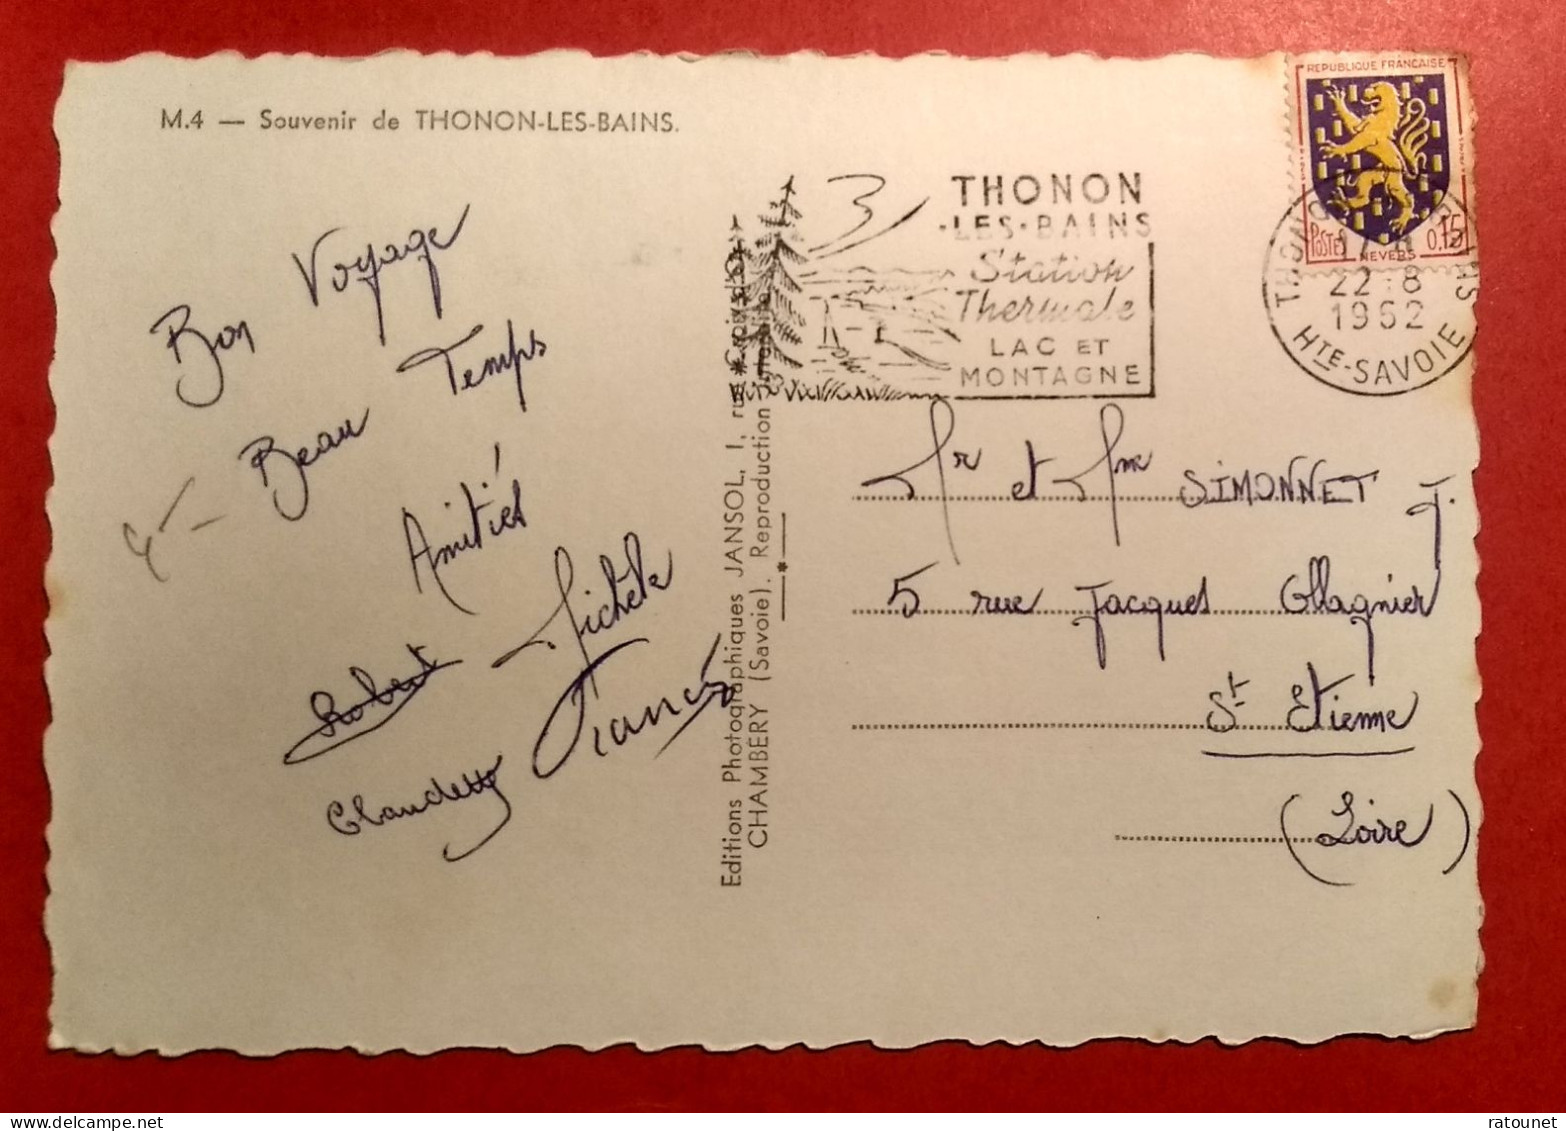 M.4 — Souvenir de THONON-LES-BAINS.
Bon Voyage
Beau Temps
Amitiés
Robert Michèle
Claudette Francis
Editions Photographiques JANSOL, 1, rue Croix-d'Or
CHAMBERY (Savoie). Reproduction interdite
THONON
-LES-BAINS
Station
Thermale
LAC ET
MONTAGNE
REPUBLIQUE FRANÇAISE
POSTES 0,15
NEVERS
THONON LES BAINS
17 H
22-8
1962
HTE-SAVOIE
Mr et Mme SIMONNET J.
5 rue Jacques Ollagnier
St Etienne
(Loire)
ratounet